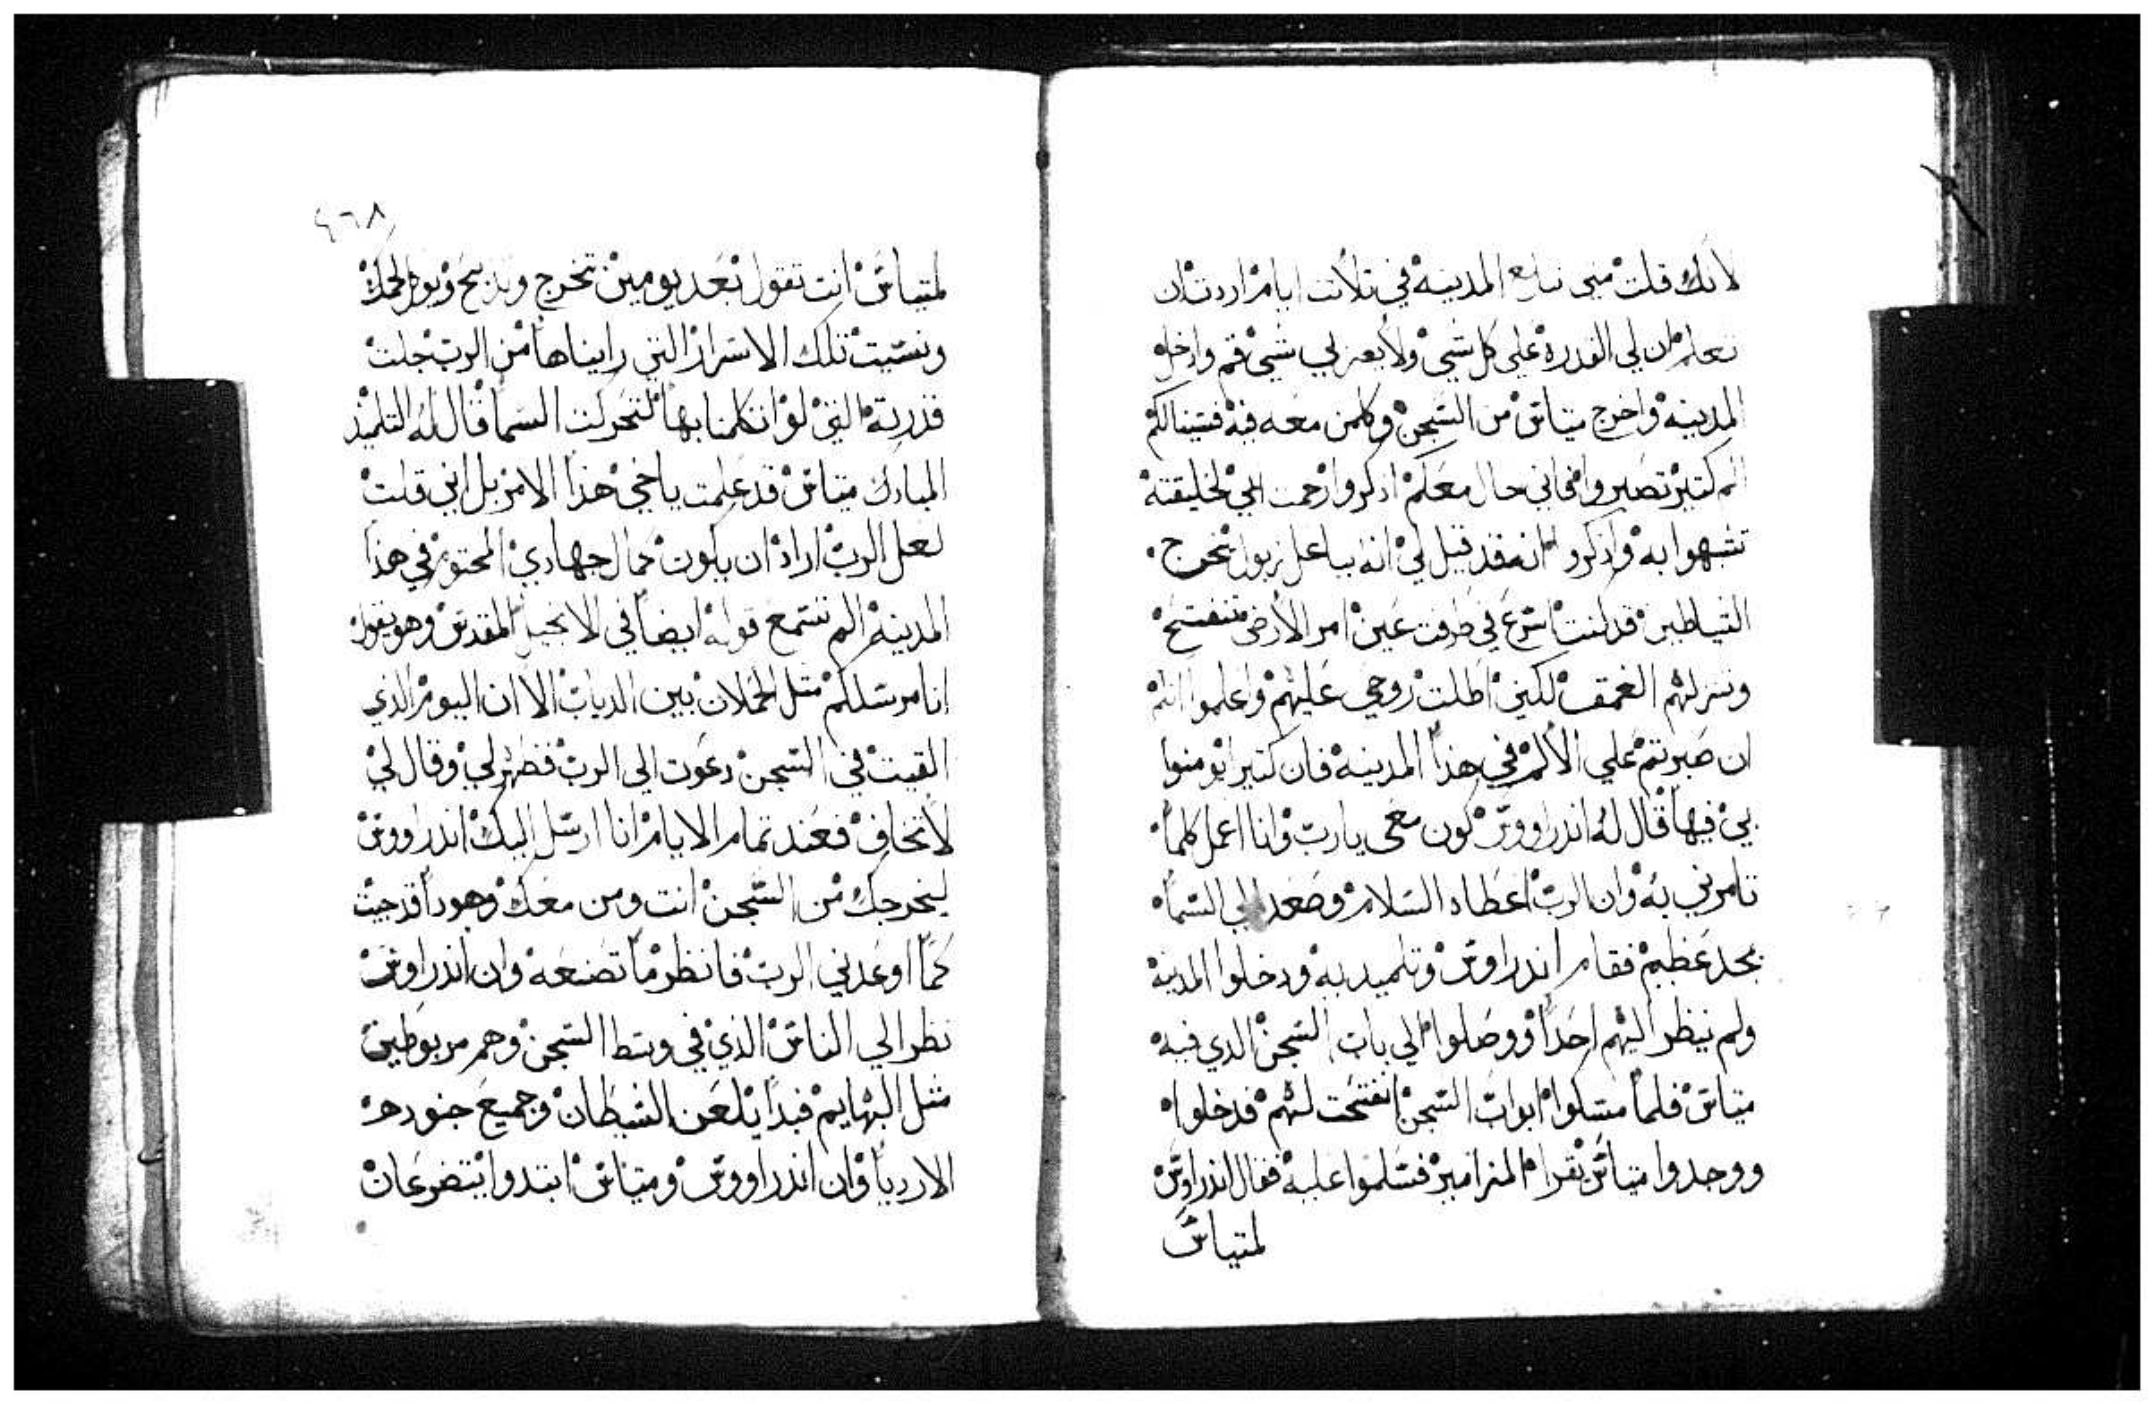 لانك قلت متى نبلغ المدينه في تلاتت ايام اردت ان
تعلم ان لي القدره على كل شي ولا يعز لي شي قم وادخل
المدينه واخرج متياس من السجن وكلمن معه فيه فسينالكم
الم كتير تصبروا فاني حال معكم ادكروا رحمت الي لخليقته
تشبهوا به وادكروا انه قد قيل لي انه بباعل زبول تخرج
الشياطين قد كنت اسرع في طرفت عين امر الارض تنفتح
وننزلهم الغمق لكني اطلت روحي عليهم واعلموا انكم
ان صبرتم علي الالم في هذا المدينه فان كتير يومنوا
بي فيها قال له اندراووس كون معي يارب وانا اعمل كلما
تامرني به وان الرب اعطاه السلام وصعد الي السما
بمجد عظيم فقام اندراوس وتلميديه ودخلوا المدينه
ولم ينظر اليهم احدا ووصلوا الي باب السجن الدي فيه
متياس فلما مسكوا ابواب السجن انفتحت لهم فدخلوا
ووجدوا متياس يقرا المزامير فسلموا عليه فقال اندراوس
لمتياس
٤٦٨
لمتياس انت تقول بعد يومين تخرج وتدبح ويوكل لحمك
ونسيت تلك الاسرار التي رايناها من الرب جلت
قدرته التي لو اتكلمنا بها لتحركت السما قال له التلميذ
المبارك متياس قد علمت ياخي هذا الامر بل اني قلت
لعل الرب اراد ان يكون كمال جهادي المحتوم في هذا
المدينه الم تسمع قوله ايضا في الانجيل المقدس وهو يقول
انا مرسلكم متل الحملان بين الدياب الا ان اليوم الذي
القيت في السجن دعوت الي الرب فظهر لي وقال لي
لا تخاف فعند تمام الايام انا ارسل اليك اندراووس
ليخرجك من السجن انت ومن معك وهودا قد جيت
كما اوعدني الرب فانظر ما تصنعه وان اندراوس
نظر الي الناس الذي في وسط السجن وهم مربوطين
مثل البهايم فبدا يلعن الشيطان وجميع جنوده
الارديا وان اندراووس ومتياس ابتدوا يتضرعان